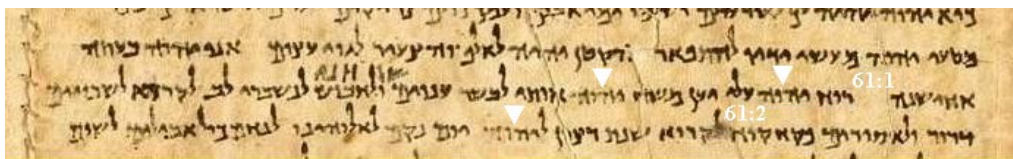 מטעי יהוה מעשי ידיו להתפאר הקטן יהיה לאלף והצעיר לגוי עצום אני יהוה בעתה
61:1
שלחני
אחישנה רוח יהוה עלי יען משח יהוה אותי לבשר ענוים ולחבוש לנשברי לב לקרוא לשבויים
61:2
דרור ולאסורים פקח קוח לקרוא שנת רצון ליהוה יום נקם לאלוהינו לנחם כל אבלים לשום